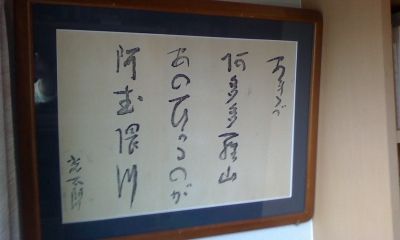 あれが
阿多多羅山
あのひかるのが
阿武隈川
光太郎